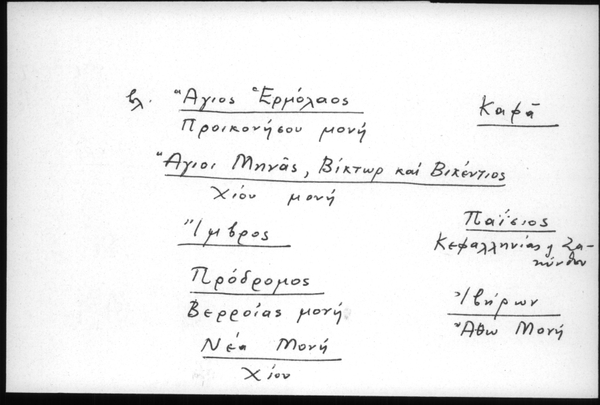 βλ. Ἅγιος Ἑρμόλαος
Προικονήσου μονή
Ἅγιοι Μηνᾶς, Βίκτωρ καί Βικέντιος
Χίου μονή
Ἴμβρος
Πρόδρομος
Βερροίας μονή
Νέα Μονή
Χίου
Καφᾶ
Παΐσιος
Κεφαλληνίας ἤ Ζα-
κύνθου
Ἰβήρων
Ἄθω Μονή